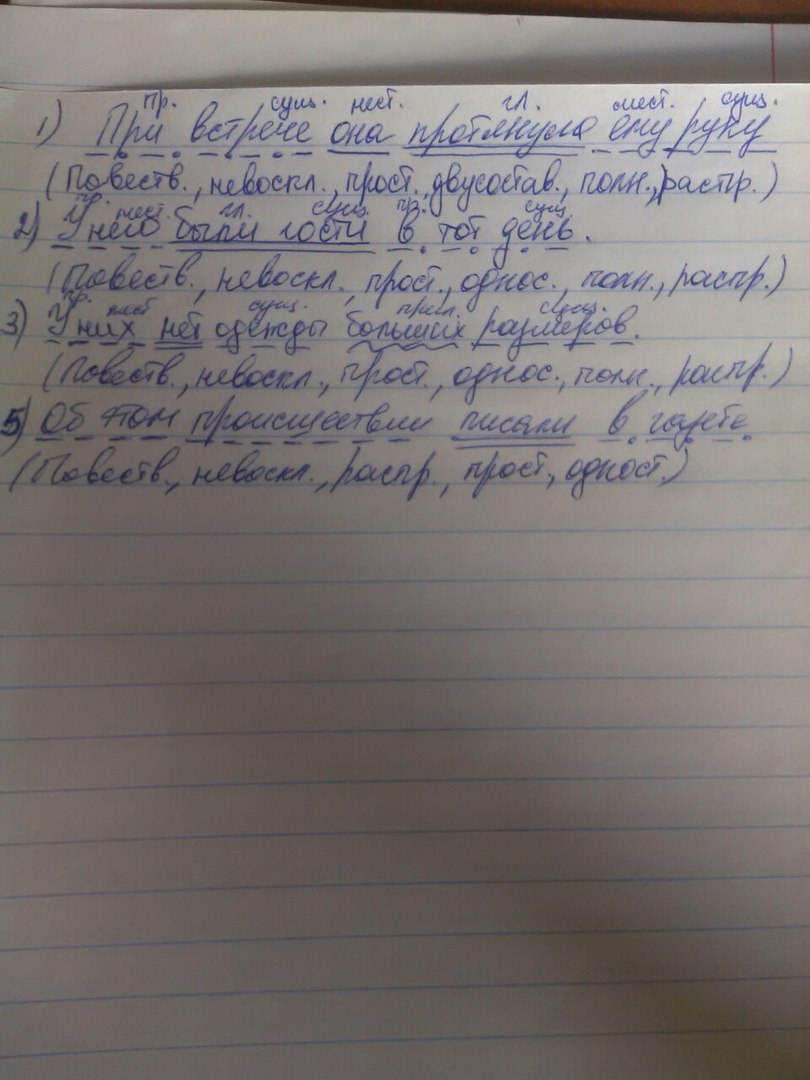 пр. сущ. мест. гл. мест. сущ.
1) При встрече она протянула ему руку
(Повеств., невоскл., прост., двусостав., полн., распр.)
пр. мест. гл. сущ. пр. сущ.
2) У него были гости в тот день.
(Повеств., невоскл., прост., однос., полн., распр.)
пр. мест. сущ. прил. сущ.
3) У них нет одежды больших размеров.
(Повеств., невоскл., прост., однос., полн., распр.)
5) Об этом происшествии писали в газете
(Повеств., невоскл., распр., прост., одност.)